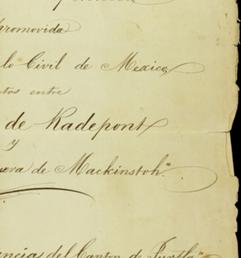 promovida
lo Civil de Mexico
tos entre
de Radepont
y
de Mackinstoh.
encias del Canton de Tuxtla